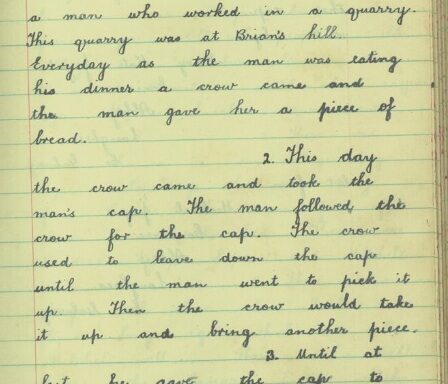 a man who worked in a quarry.
This quarry was at Brian's hill.
Everyday as the man was eating
his dinner a crow came and
the man gave her a piece of
bread.
2. This day
the crow came and took the
man's cap. The man followed the
crow for the cap. The crow
used to leave down the cap
until the man went to pick it
up. Then the crow would take
it up and bring another piece.
3. Until at
last he gave the cap to